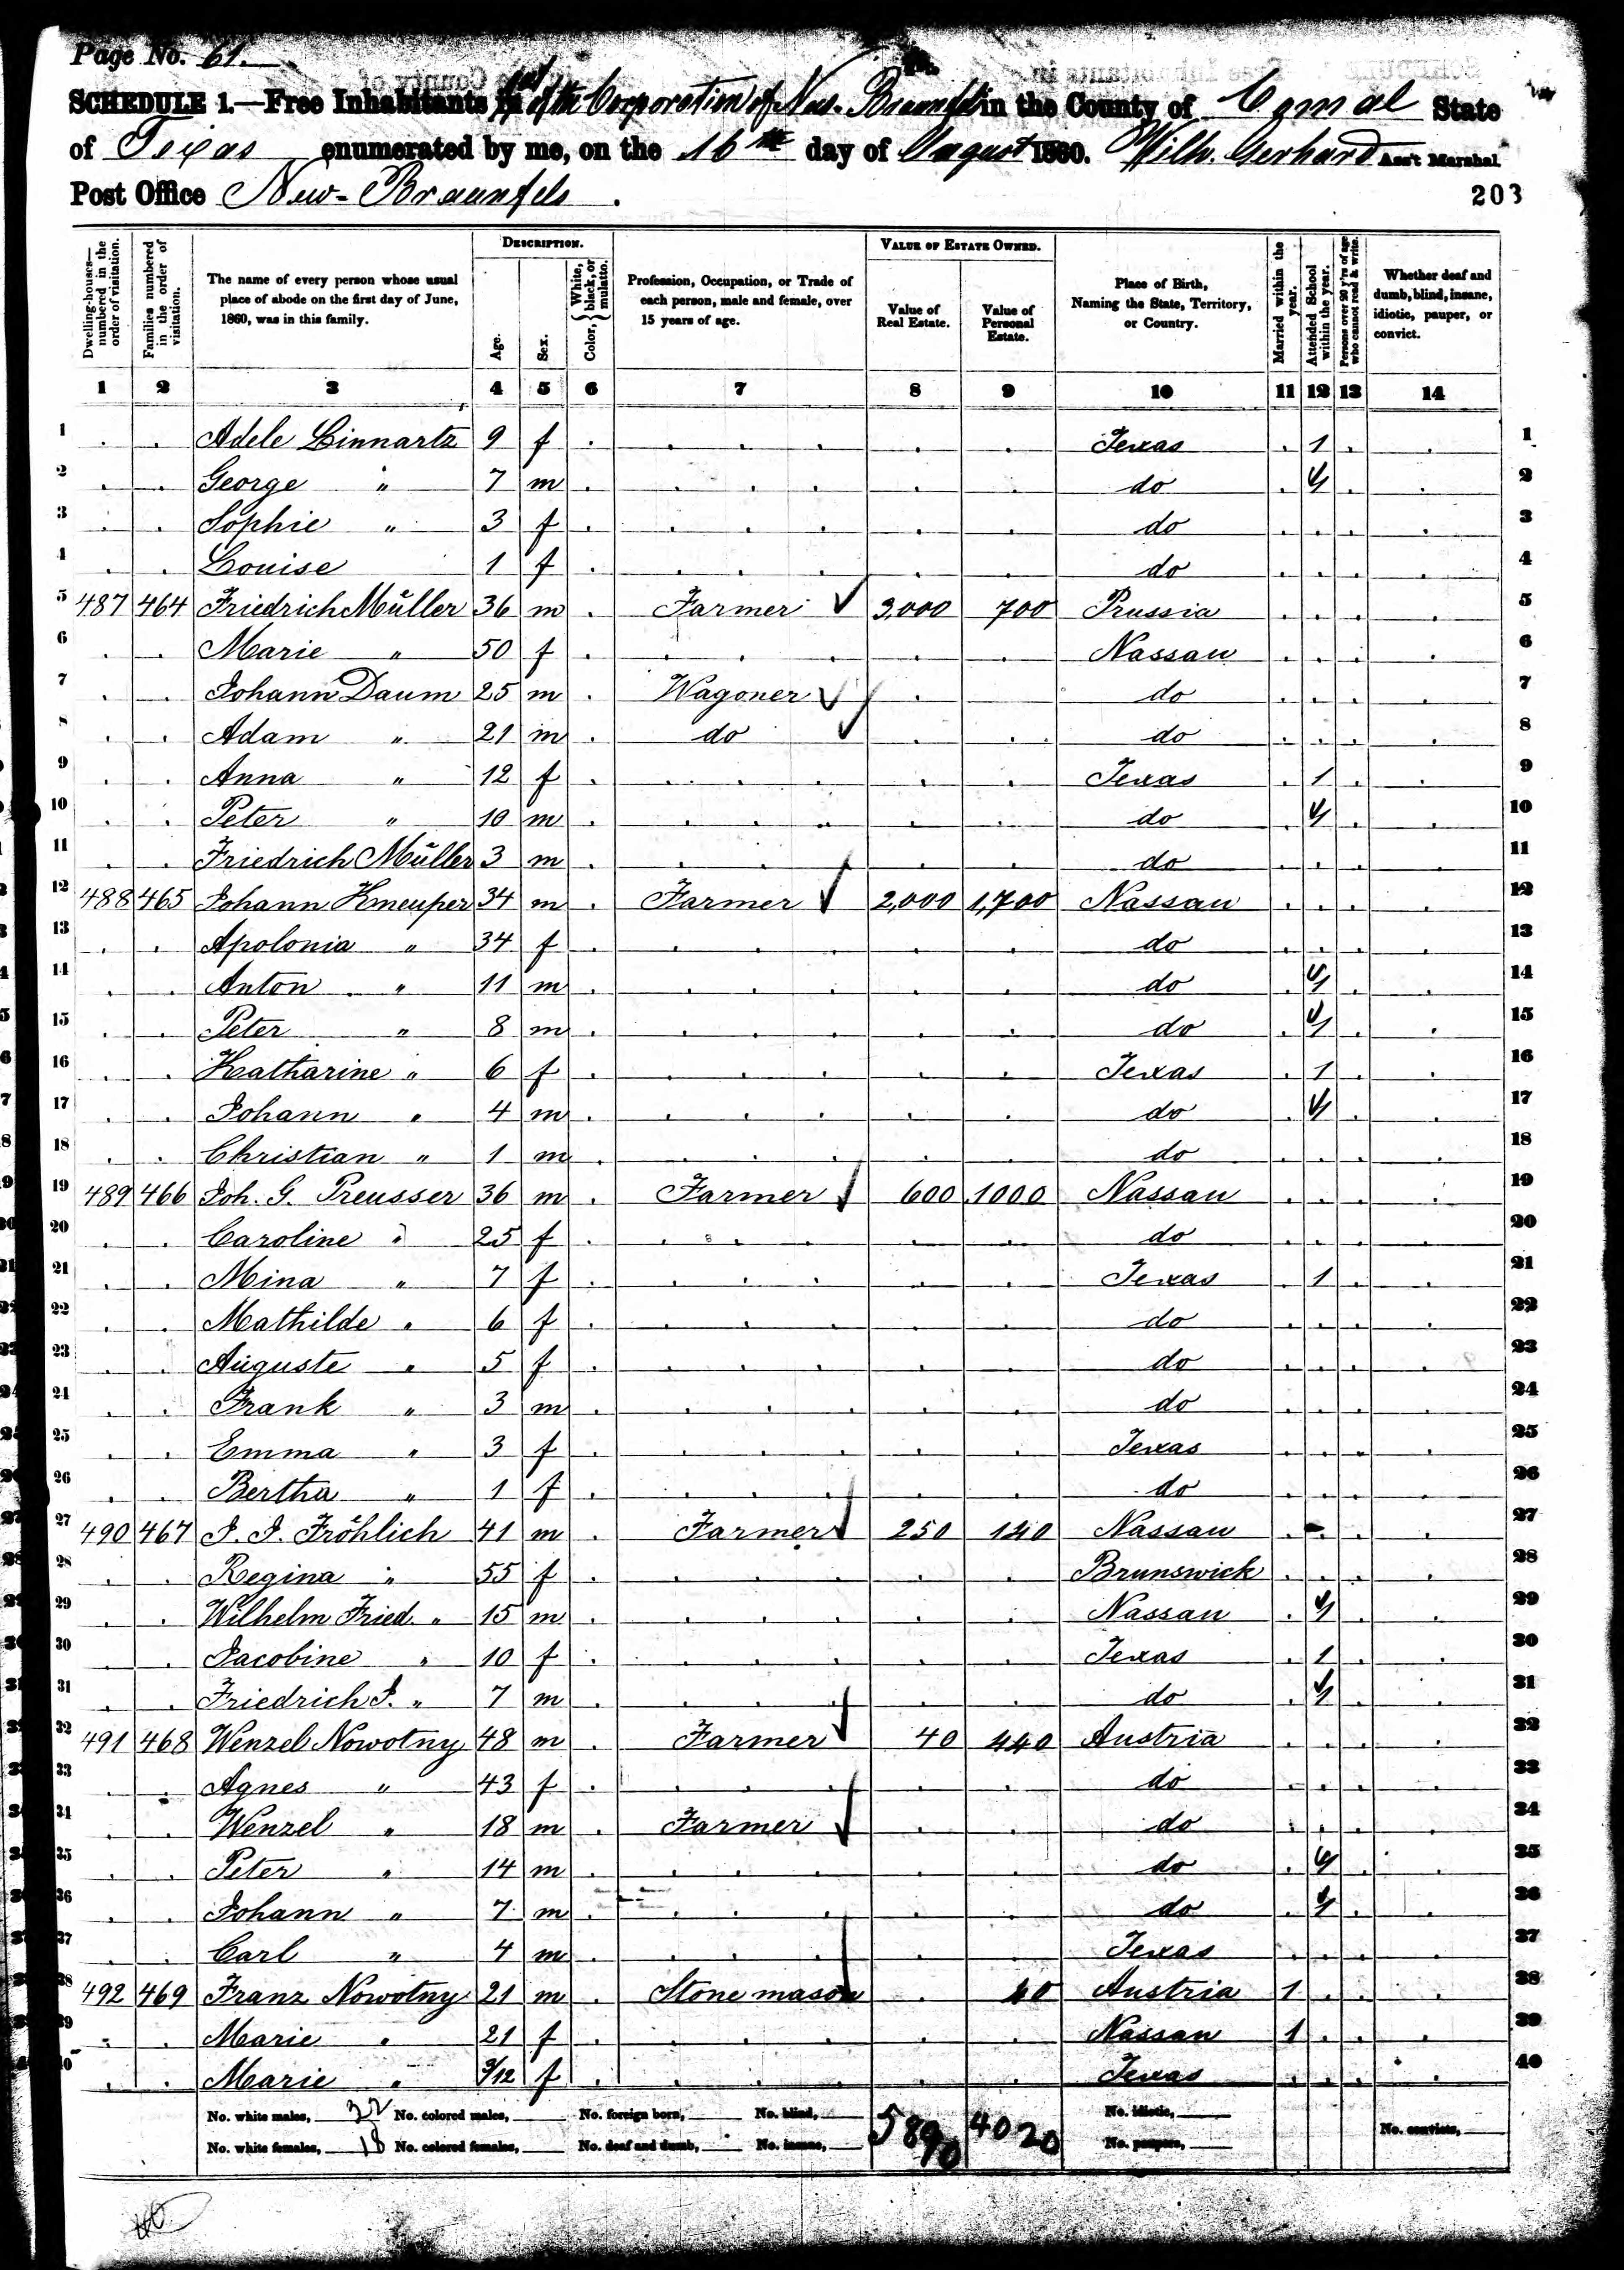 Page No. 61.
SCHEDULE 1.—Free Inhabitants in the Corporation of New-Braunfels in the County of Comal State
of Texas enumerated by me, on the 16th day of August 1860. Wilh. Gerhard Ass't Marshal
Post Office New-Braunfels.
203
Dwelling-houses—numbered in the order of visitation. Families numbered in the order of visitation. The name of every person whose usual place of abode on the first day of June, 1860, was in this family. DESCRIPTION. Age. Sex. Color, {White, black, or mulatto. Profession, Occupation, or Trade of each person, male and female, over 15 years of age. VALUE OF ESTATE OWNED. Value of Real Estate. Value of Personal Estate. Place of Birth, Naming the State, Territory, or Country. Married within the year. Attended School within the year. Persons over 20 y'rs of age who cannot read & write. Whether deaf and dumb, blind, insane, idiotic, pauper, or convict.
1 2 3 4 5 6 7 8 9 10 11 12 13 14
1 Adele Linnartz 9 f Texas 1 1
2 George " 7 m do 1 2
3 Sophie " 3 f do 3
4 Louise 1 f do 4
5 487 464 Friedrich Müller 36 m Farmer 3,000 700 Prussia 5
6 Marie " 50 f Nassau 6
7 Johann Daum 25 m Wagoner do 7
8 Adam " 21 m do do 8
9 Anna " 12 f Texas 1 9
10 Peter " 10 m do 1 10
11 Friedrich Müller 3 m do 11
12 488 465 Johann Kneuper 34 m Farmer 2,000 1,700 Nassau 12
13 Apolonia " 34 f do 13
14 Anton " 11 m do 1 14
15 Peter " 8 m do 1 15
16 Katharine " 6 f Texas 1 16
17 Johann " 4 m do 1 17
18 Christian " 1 m do 18
19 489 466 Joh. G. Preusser 36 m Farmer 600 1000 Nassau 19
20 Caroline " 25 f do 20
21 Mina " 7 f Texas 1 21
22 Mathilde " 6 f do 22
23 Auguste " 5 f do 23
24 Frank " 3 m do 24
25 Emma " 3 f Texas 25
26 Bertha " 1 f do 26
27 490 467 J. J. Fröhlich 41 m Farmer 250 140 Nassau 27
28 Regina " 55 f Brunswick 28
29 Wilhelm Fried. " 15 m Nassau 1 29
30 Jacobine " 10 f Texas 1 30
31 Friedrich J. " 7 m do 1 31
32 491 468 Wenzel Nowotny 48 m Farmer 40 440 Austria 32
33 Agnes " 43 f do 33
34 Wenzel " 18 m Farmer do 34
35 Peter " 14 m do 1 35
36 Johann " 7 m do 1 36
37 Carl " 4 m Texas 37
38 492 469 Franz Nowotny 21 m Stone mason 40 Austria 1 38
39 Marie " 21 f Nassau 1 39
40 Marie " 3/12 f Texas 40
No. white males, 22 No. colored males, No. foreign born, No. blind, 5890 4020 No. idiotic,
No. white females, 18 No. colored females, No. deaf and dumb, No. insane, No. paupers, No. convicts,